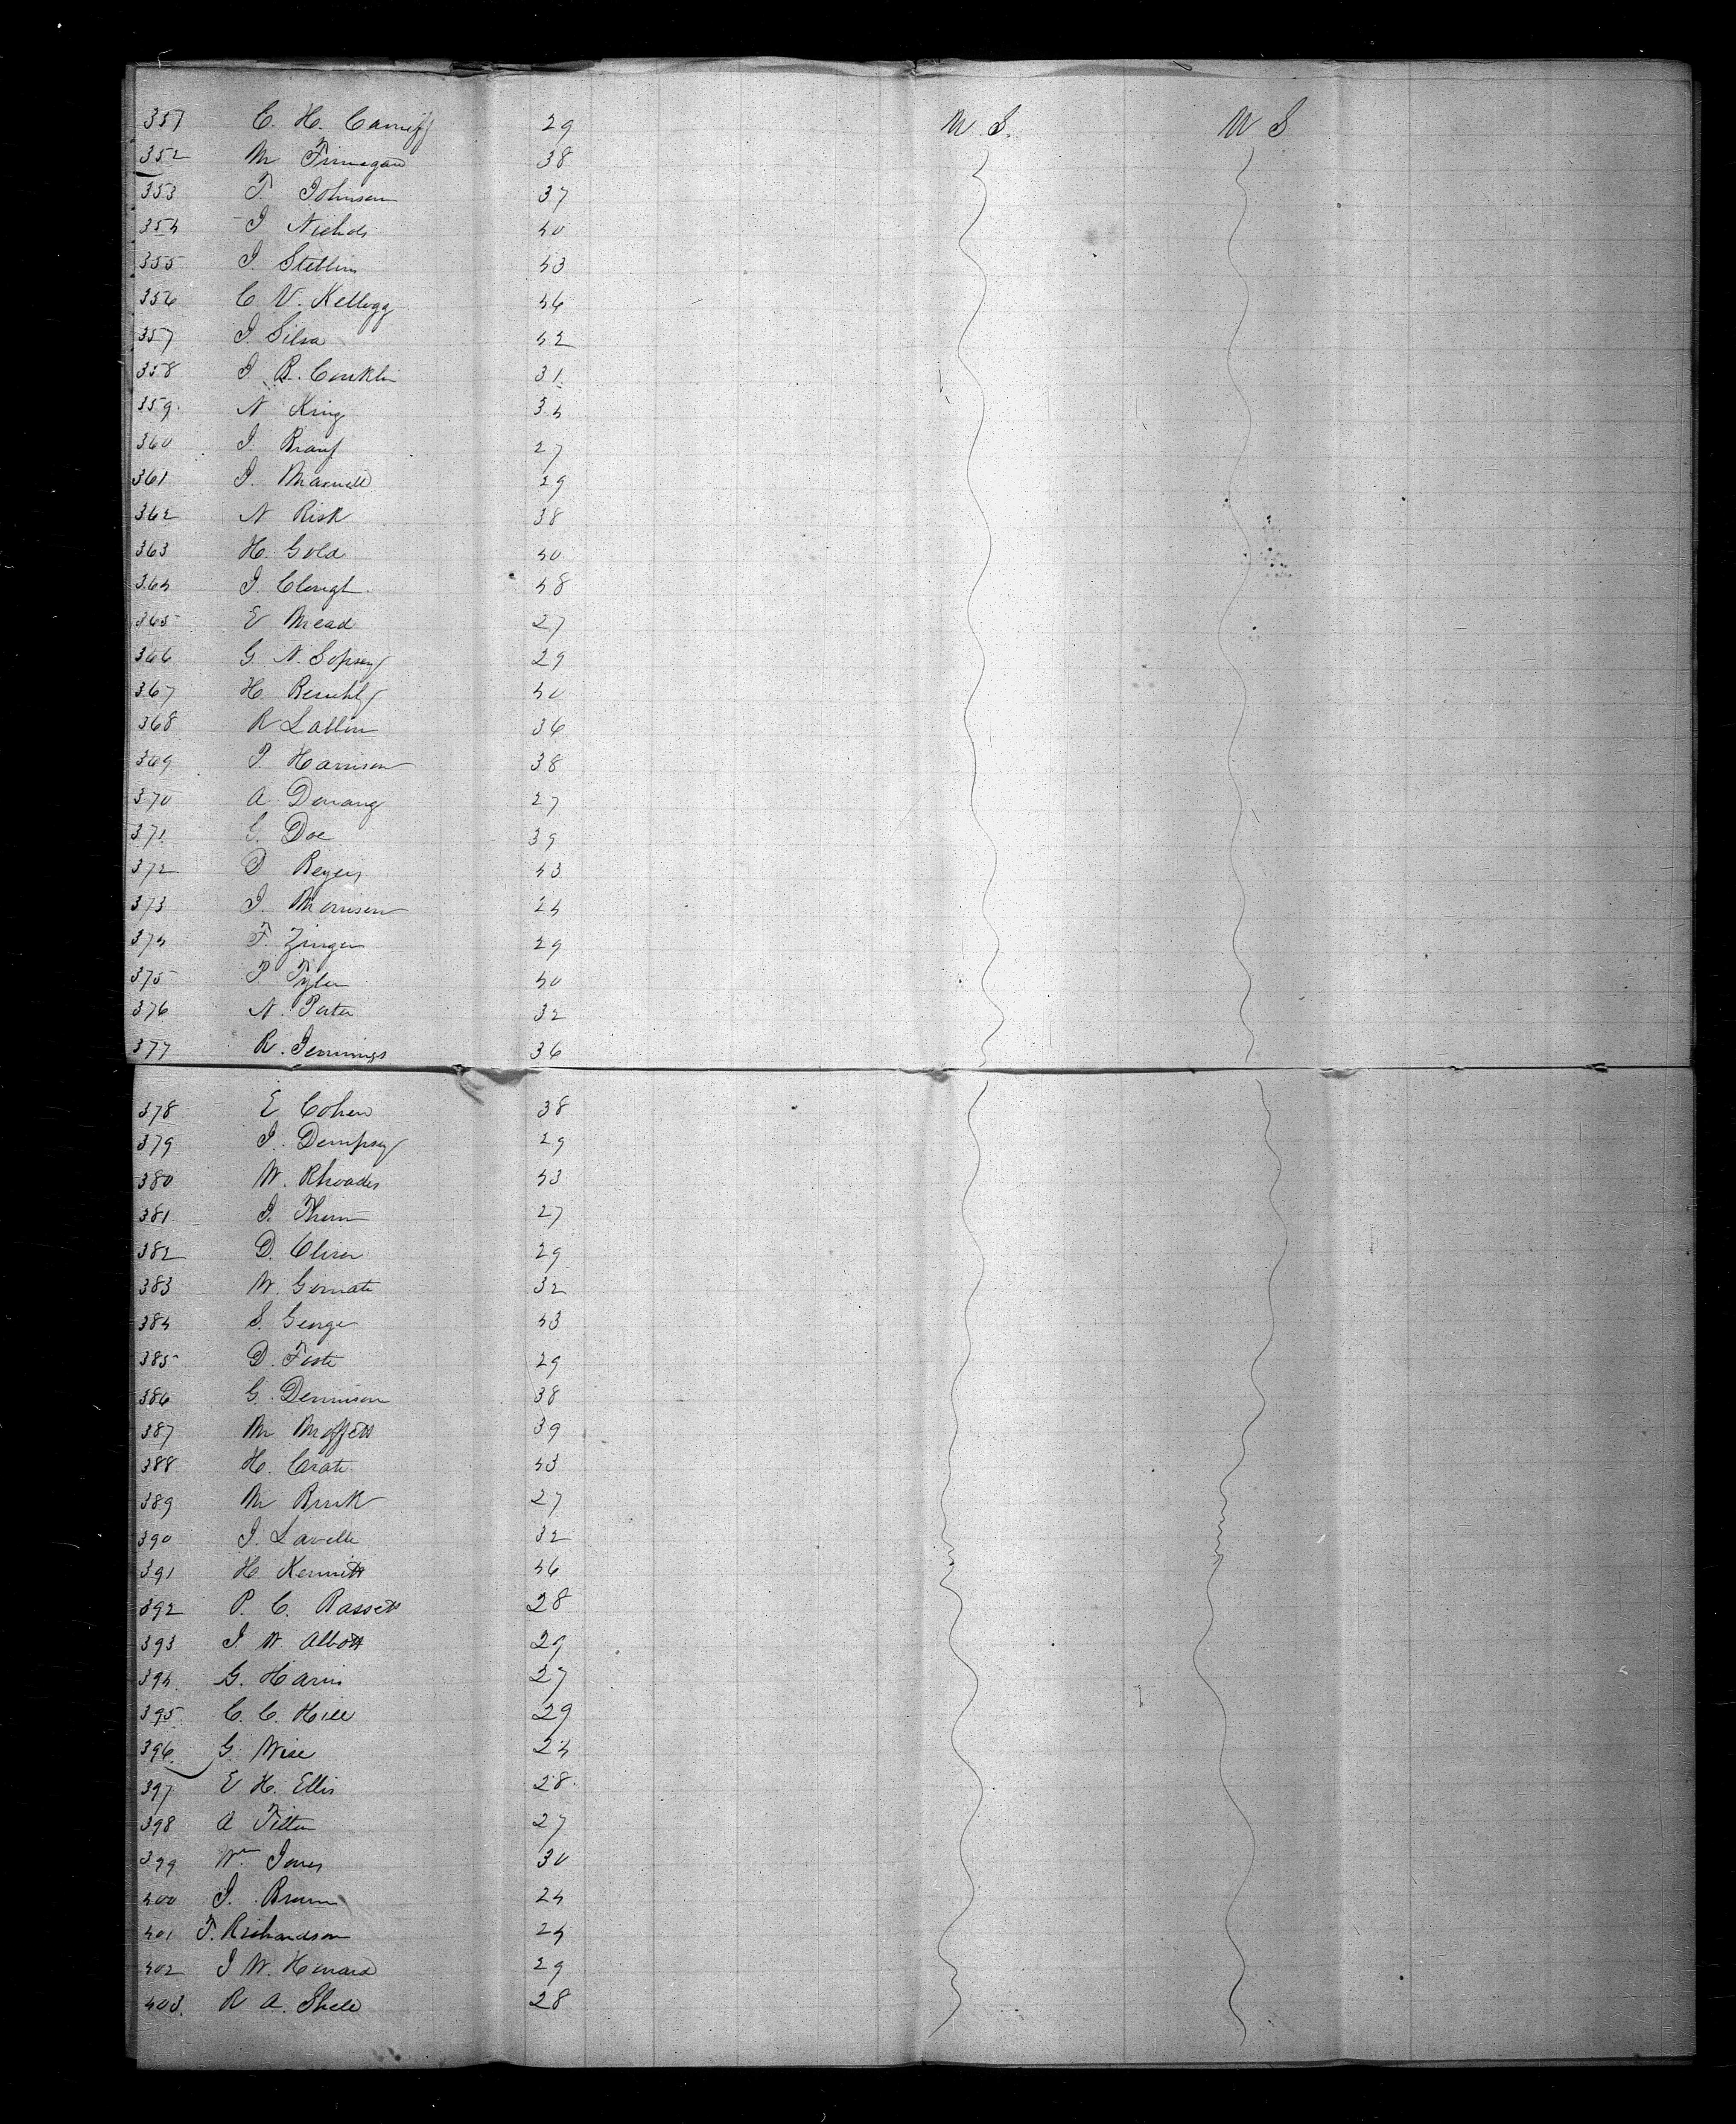 351 C. H. Canniff 29 U. S. U S
352 M Finnegan 38
353 T. Johnson 37
354 J Nichols 40
355 J. Stebbins 43
356 C V. Kellogg 46
357 J. Silva 42
358 J. B. Conklin 31
359 N King 34
360 J. 27
361 J. Maxwell 29
362 N Risk 38
363 H. Gold 40
364 J. Clough 48
365 E Mead 27
366 G N. 29
367 H. 40
368 R Laflin 36
369 P. Harrison 38
370 A. 27
371 G. Doe 39
372 D Reyes 43
373 J. Morrison 24
374 F. Zinger 29
375 P. Tyler 40
376 N. Porter 32
377 R. Jennings 36
378 E Cohen 38
379 J. Dempsey 29
380 W. Rhoades 43
381 J. 27
382 D. Oliver 29
383 W. 32
384 S. George 43
385 D. Foster 29
386 G. Dennison 38
387 M Moffett 39
388 H. 43
389 M 27
390 J. Lavelle 32
391 H. 46
392 P. C. Bassett 28
393 J. W. Abbott 29
394 G. Harris 27
395 C. C. Hill 29
396 G. Wise 24
397 E H. Ellis 28
398 A 27
399 Wm Jones 30
400 J. Brown 24
401 F. Richardson 24
402 J W. Howard 29
403 R A. 28